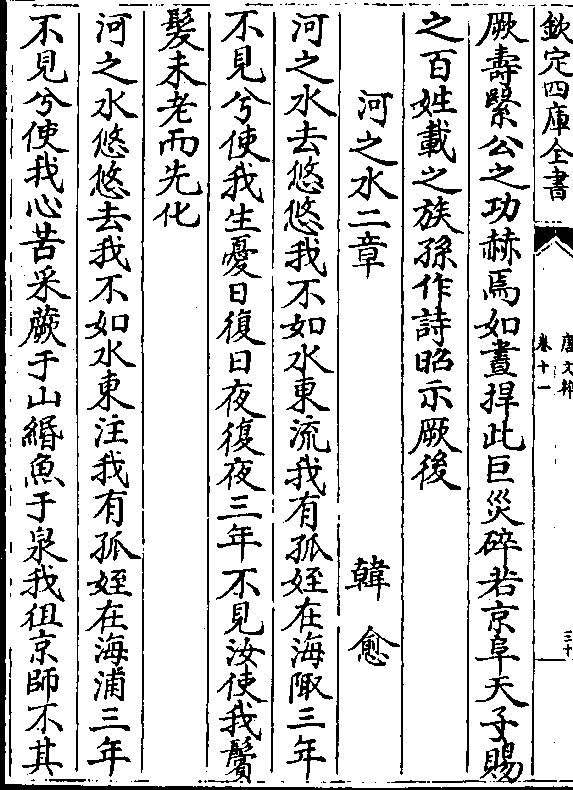 欽定四庫全書
唐文粹
卷十一
三十
厥壽緊公之功赫焉如晝捍此巨災碎若京阜天子賜
之百姓載之族孫作詩昭示厥後
河之水二章 韓愈
河之水去悠悠我不如水東流我有孤姪在海陬三年
不見兮使我生憂日復日夜復夜三年不見汝使我鬢
髮未老而先化
河之水悠悠去我不如水東注我有孤姪在海浦三年
不見兮使我心苦采蕨于山緡魚于泉我徂京師不其